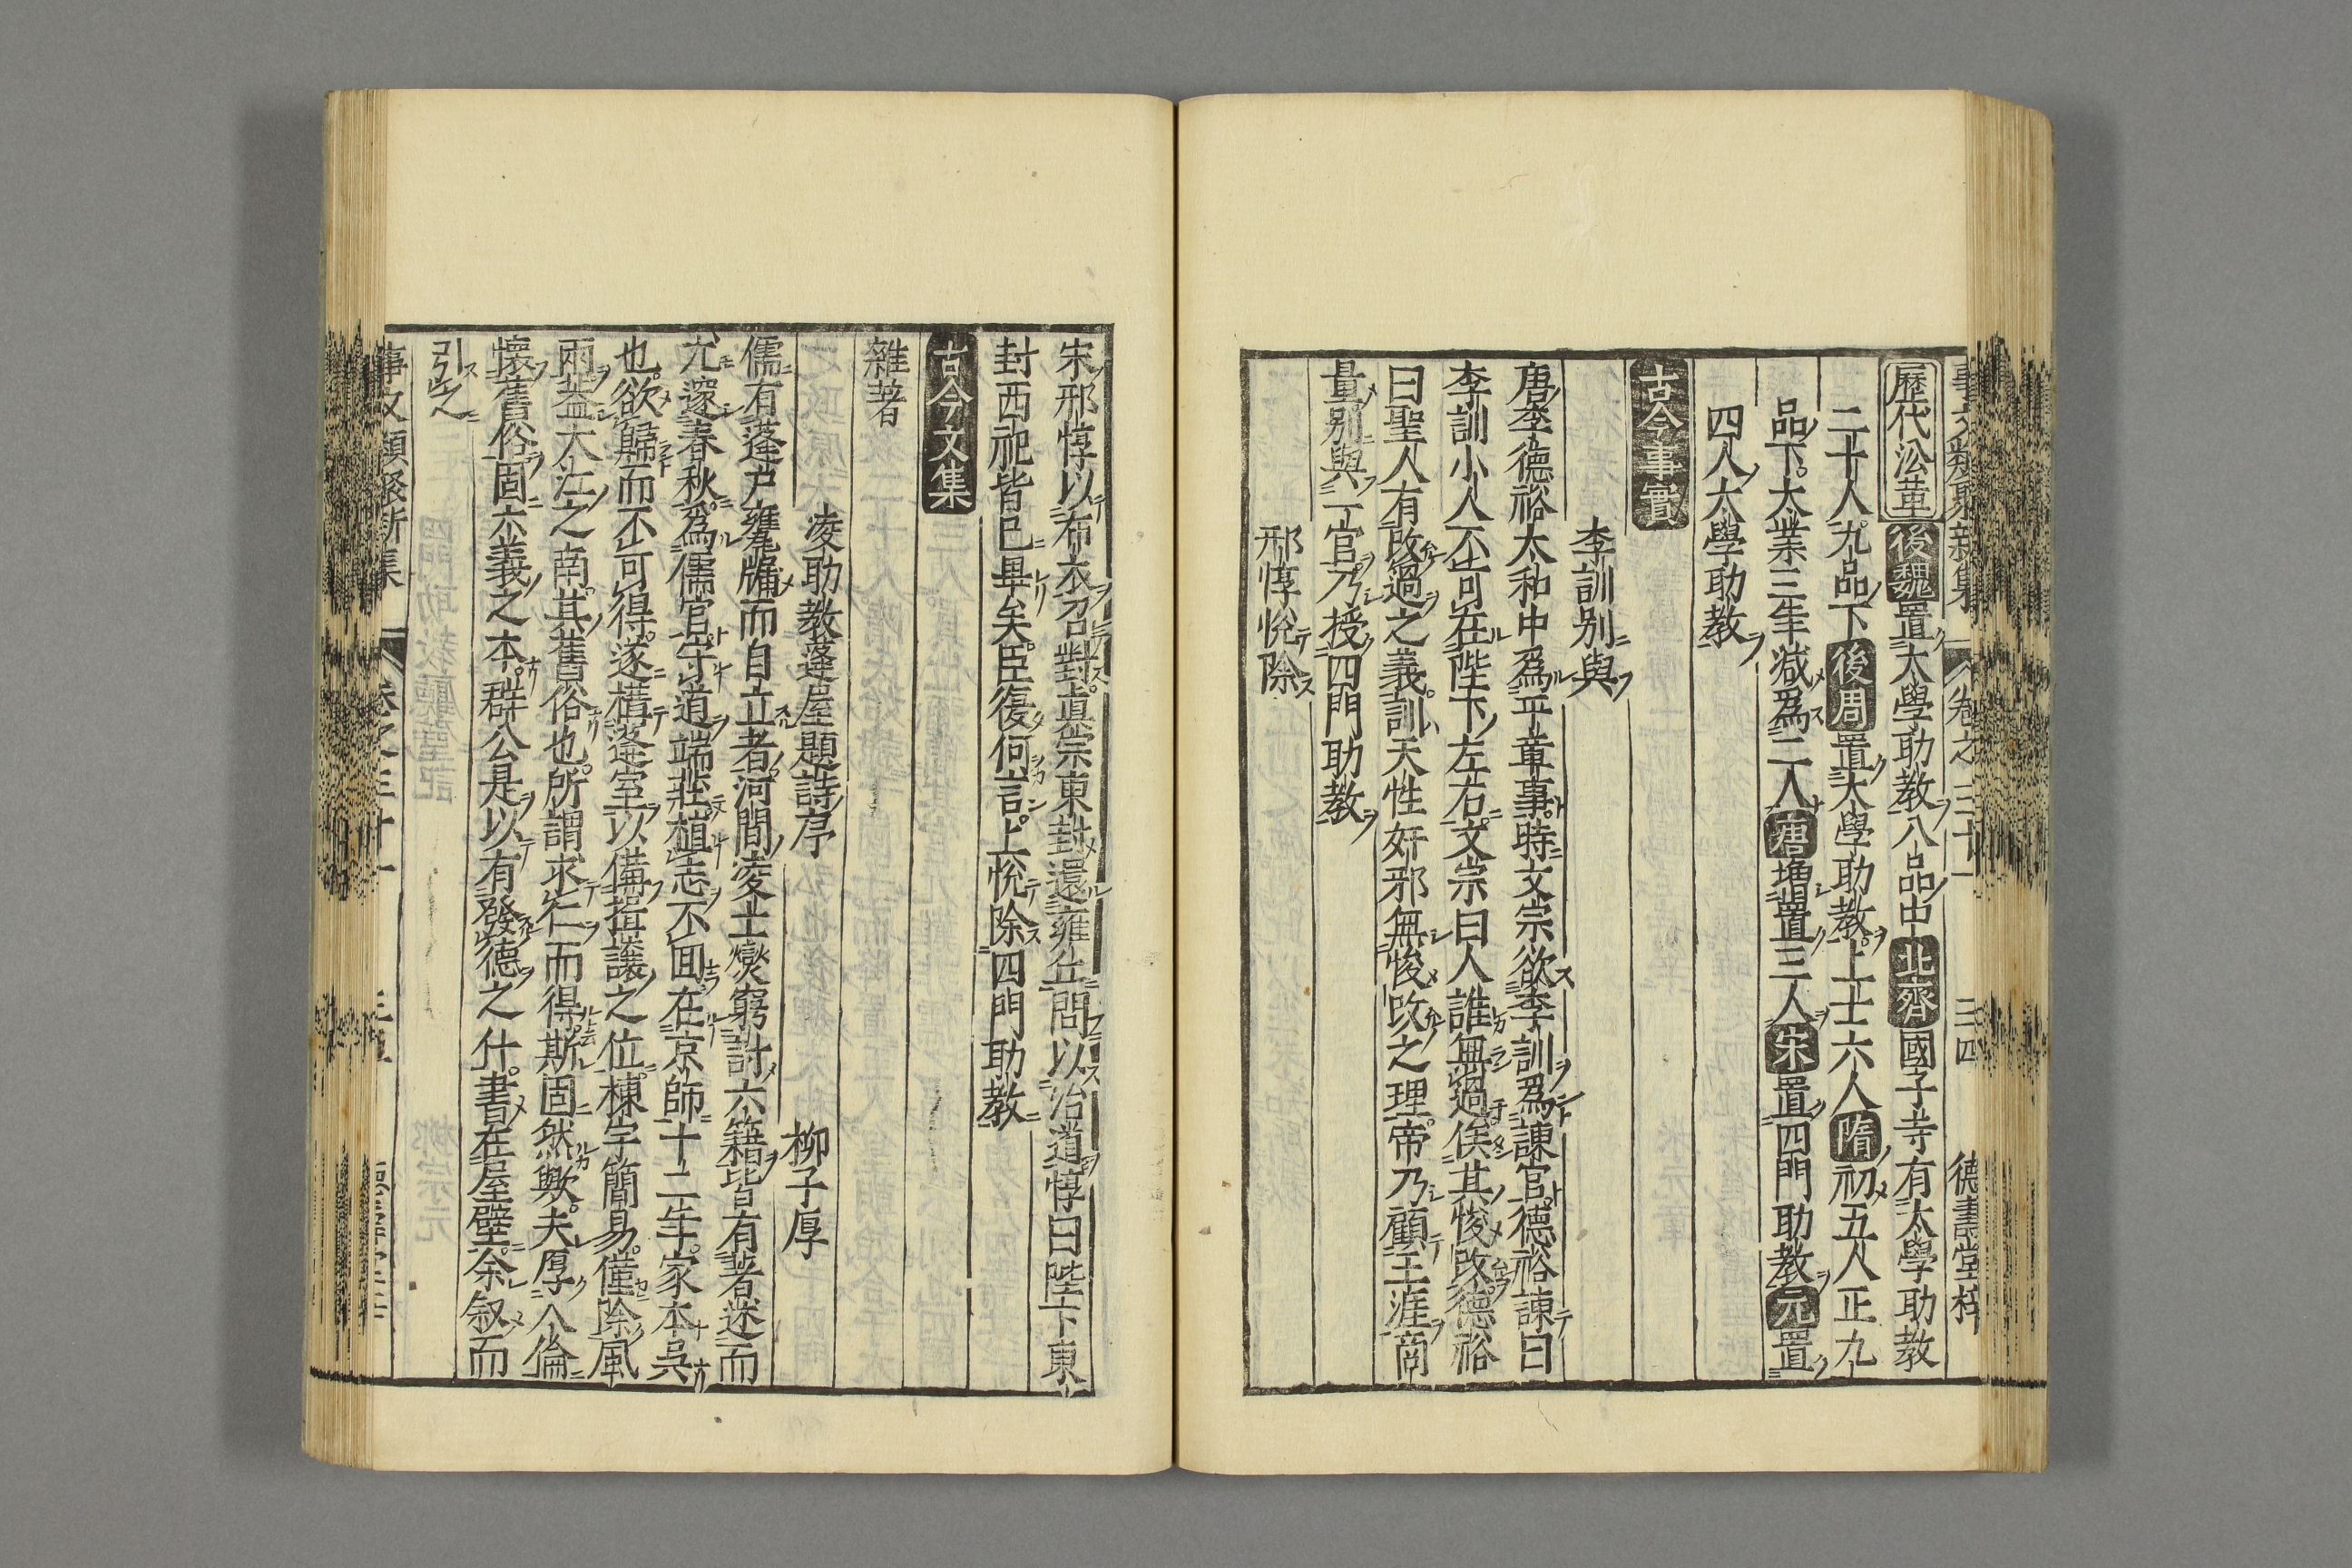 歷代沿革 後魏置太學助教八品中北齊國子寺有太學助教
二十人九品下後周置太學助教上士六人隋初五人正九
品下太業三年減爲二人唐增置三人宋置四門助教元置
四人太學助教
古今事實
李訓別與
唐李德裕太和中爲平章事時文宗欲李訓爲諫官德裕諫曰
李訓小人不可在陛下左右文宗曰人誰無過俟其悛改德裕
曰聖人有改過之義訓天性奸邪無悛改之理帝乃顧王涯商
量別與一官乃授四門助教
邢惇悅除
宋邢惇以布衣召對眞宗東封還雍丘問以治道惇曰陛下東
封西祀皆已畢矣臣復何言上悅除四門助教
古今文集
雜著
凌助教蓬屋題詩序 柳子厚
儒有蓬戶甕牖而自立者河間凌士燮窮討六籍皆有著述而
尤邃春秋爲儒官守道端莊植志不回在京師十二年家本吳
也欲歸而不可得遂構蓬室以備揖讓之位棟宇簡易僅除風
雨蓋大江之南其舊俗也所謂求仁而得斯固然歟夫厚人倫
懷舊俗固六義之本群公是以有發德之什書在屋壁余叙而
引之
事文類聚新集